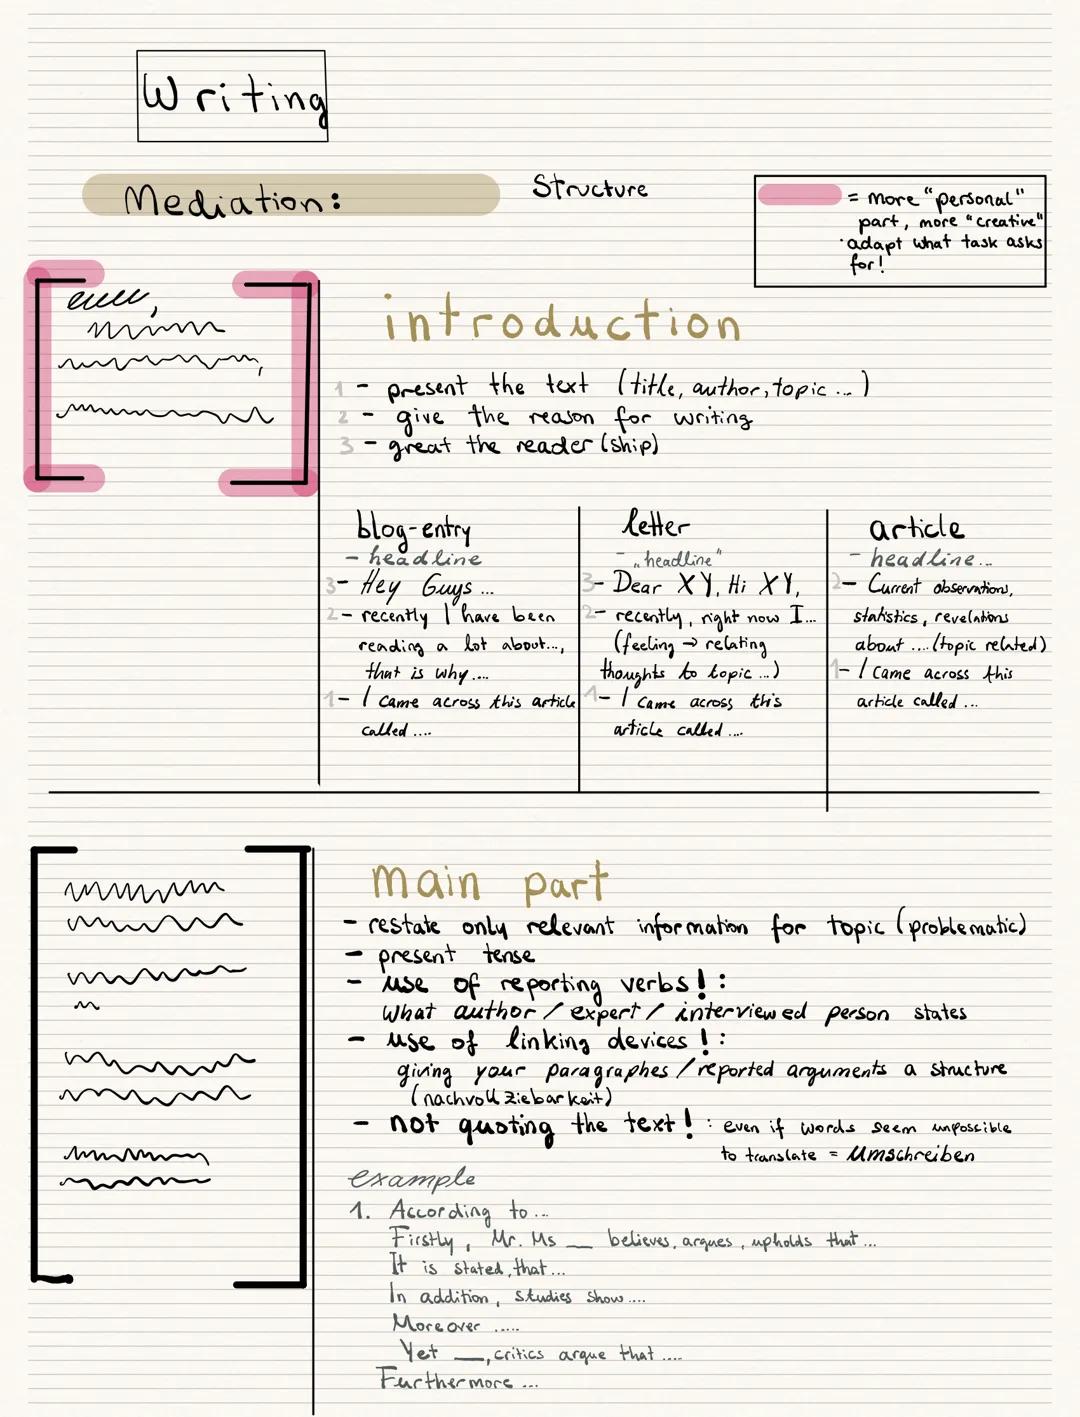 Writing
Mediation:
Structure
= more "personal"
part, more "creative"
· adapt what task asks
for!
introduction
1 - present the text (title, author, topic ... )
2 - give the reason for writing
3 - great the reader (ship)
blog-entry
- headline
3- Hey Guys ...
2- recently I have been
reading a lot about...,
that is why....
1- I came across this article
called ....
letter
- „headline"
3- Dear XY, Hi XY,
2- recently, right now I...
(feeling → relating
thoughts to topic ...)
1- I came across this
article called ....
article
- headline...
2- Current observations,
statistics, revelations
about .... (topic related)
1- I came across this
article called ...
main part
- restate only relevant information for topic (problematic)
- present tense
- use of reporting verbs!:
What author / expert / interviewed person states
- use of linking devices!:
giving your paragraphes / reported arguments a structure
(nachvollziebarkeit)
- not quoting the text! : even if words seem unpossible
to translate = Umschreiben
example
1. According to...
Firstly, Mr. Ms __ believes, argues, upholds that ...
It is stated, that ...
In addition, studies show ....
Moreover .....
Yet __, critics argue that ....
Furthermore ...